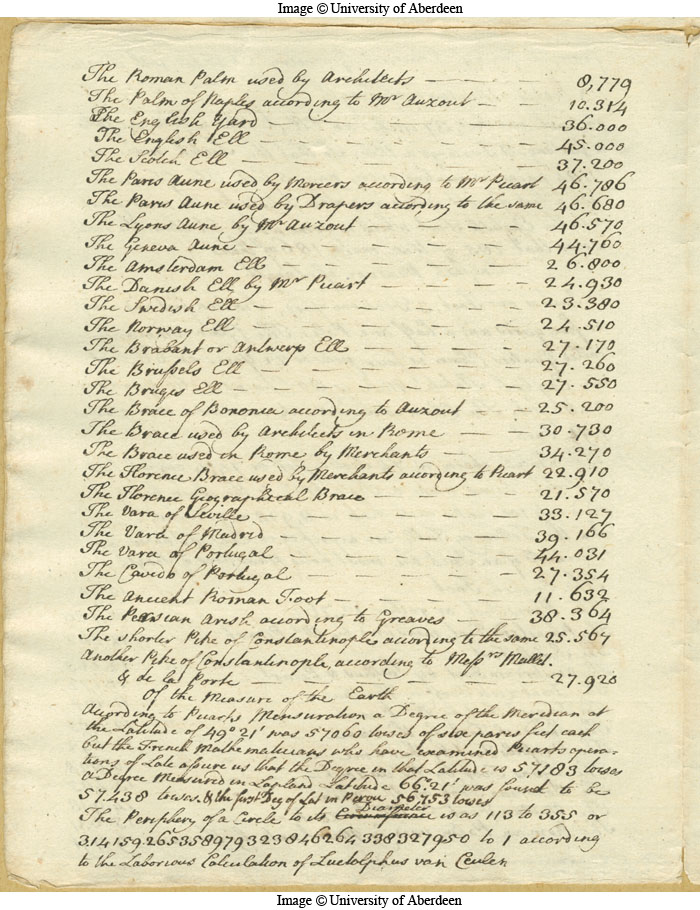 Image © University of Aberdeen
The Roman Palm used by Architects — — — 8,779
The Palm of Naples according to Mr Auzout — — 10.314
The English Yard — — — — — — 36.000
The English Ell — — — — — — 45.000
The Scotch Ell — — — — — — 37.200
The Paris Aune used by Mercers according to Mr Picart 46.786
The Paris Aune used by Drapers according to the same 46.680
The Lyons Aune by Mr Auzout — — — — 46.570
The Geneva Aune — — — — — — 44.760
The Amsterdam Ell — — — — — 26.800
The Danish Ell by Mr Picart — — — — 24.930
The Swedish Ell — — — — — — 23.380
The Norway Ell — — — — — — 24.510
The Brabant or Antwerp Ell — — — — 27.170
The Brussels Ell — — — — — — 27.260
The Bruges Ell — — — — — — 27.550
The Brace of Bononia according to Auzout — — 25.200
The Brace used by Architects in Rome — — — 30.730
The Brace used in Rome by Merchants — — — 34.270
The Florence Brace used by Merchants according to Picart 22.910
The Florence Geographical Brace — — — — 21.570
The Vara of Seville — — — — — — 33.127
The Vara of Madrid — — — — — — 39.166
The Vara of Portugal — — — — — 44.031
The Cavido of Portugal — — — — — 27.354
The Ancient Roman Foot — — — — — 11.632
The Persian Arish according to Greaves — — — 38.364
The shorter Pike of Constantinople according to the same 25.567
Another Pike of Constantinople, according to Messrs Mallet.
& de la Porte — — — — — — 27.920
Of the Measure of the Earth
According to Picarts Mensuration a Degree of the Meridian at
the Latitude of 49° 21' was 57060 toises of six pares feet each
but the French Mathematicians who have examined Picarts opera-
tions of Late assure us that the Degree in that Latitude is 57183 toises
a Degree Measured in Lapland Latitude 66.21' was found to be
57.438 toises. & the first Deg of Lat in Perou 56,753 toises
Diameter
The Periphery of a Circle to its Circumference is as 113 to 355 or
3.14159.26535897932384626433832 7950 to 1 according
to the Laborious Calculation of Luctolphus van Ceulen
Image © University of Aberdeen